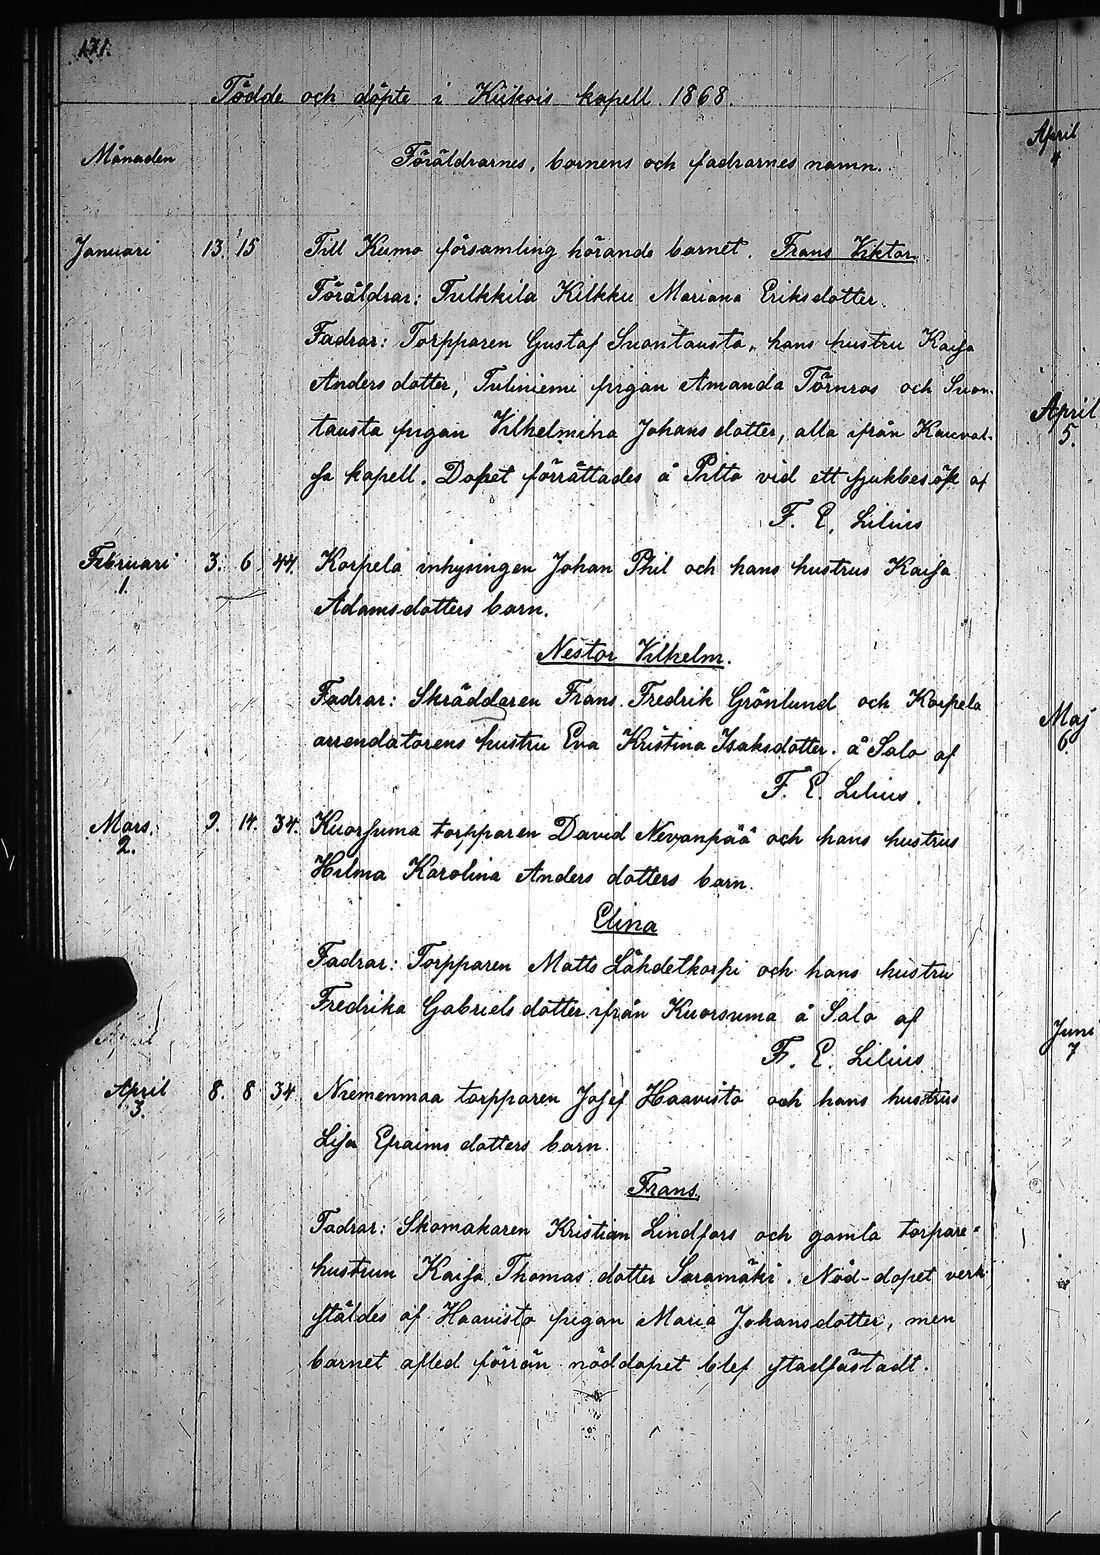 171.
Födde och döpte i Kiikois kapell 1868.
Månaden Föräldrarnes, barnens och fadrarnes namn.
Januari 13. 15 Till Kumo församling hörande barnet. Frans Viktor.
Föräldrar: Tulkkila Kilkku Mariana Eriksdotter.
Fadrar: Torpparen Gustaf Suontausta, hans hustru Kaisa
Anders dotter, Tuliniemi pigan Amanda Törnros och Suon-
tausta pigan Vilhelmina Johans dotter, alla ifrån Kauvat-
sa kapell. Dopet förrättades å Pitto vid ett sjukbesök af
F. E. Lilius
Februari 3. 6 44. Korpela inhysingen Johan Phil och hans hustrus Kaisa
1.
Adamsdotters barn.
Nestor Vilhelm.
Fadrar: Skräddaren Frans Fredrik Grönlund och Korpela
arrendatorens hustru Eva Kristina Isaksdotter. å Salo af
F. E. Lilius.
Mars. 9. 14. 34. Kuorsuma torpparen David Nevanpää och hans hustrus
2.
Hilma Karolina Anders dotters barn.
Elina
Fadrar: Torpparen Matts Lähdetkorpi och hans hustru
Fredrika Gabriels dotter ifrån Kuorsuma å Salo af
F. E. Lilius
April 8. 8 34. Niemenmaa torpparen Josef Haavisto och hans hustrus
3.
Lisa Epraims dotters barn.
Frans.
Fadrar: Skomakaren Kristian Lindfors och gamla torpare-
hustrun Kaisa Thomas dotter Saramäki. Nöd-dopet verk-
stäldes af Haavisto pigan Maria Johansdotter, men
barnet afled förrän nöddopet blef stadfästadt.
April
4
April
5.
Maj
6.
Juni
7